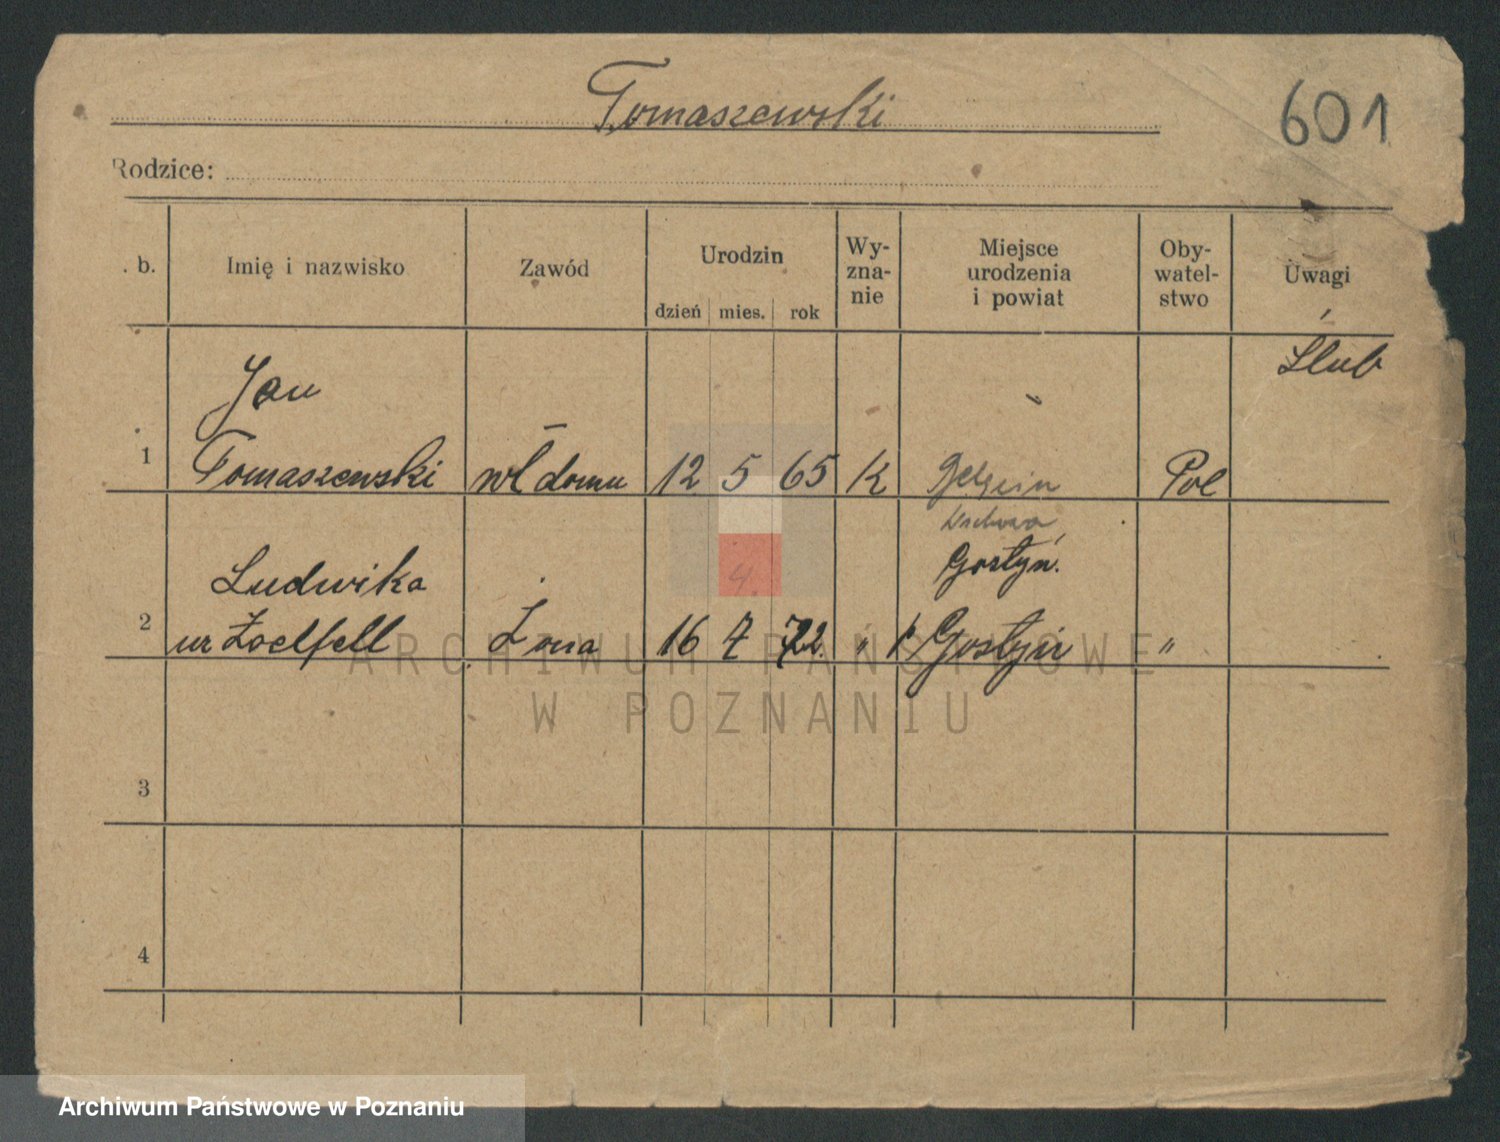 Tomaszewski
601
Rodzice:
. b. Imię i nazwisko Zawód Urodzin dzień mies. rok Wy-zna-nie Miejsce urodzenia i powiat Oby-watel-stwo Uwagi
Ślub
Jan
1 Tomaszewski wł domu 12 5 65 K Pol
Gostyń.
4.
Ludwika
2 ur Zoelfell Żona 16 7 72. " Gostyń "
3
4
ARCHIWUM PAŃSTWOWE
W POZNANIU
Archiwum Państwowe w Poznaniu